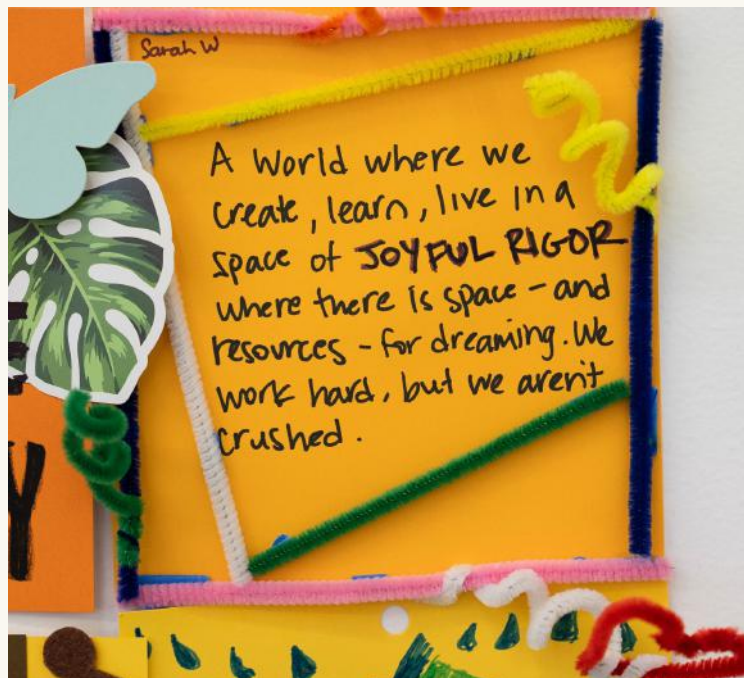 Sarah W
A World where we
create, learn, live in a
space of JOYFUL RIGOR
where there is space - and
resources - for dreaming. We
work hard, but we aren't
crushed.
Y